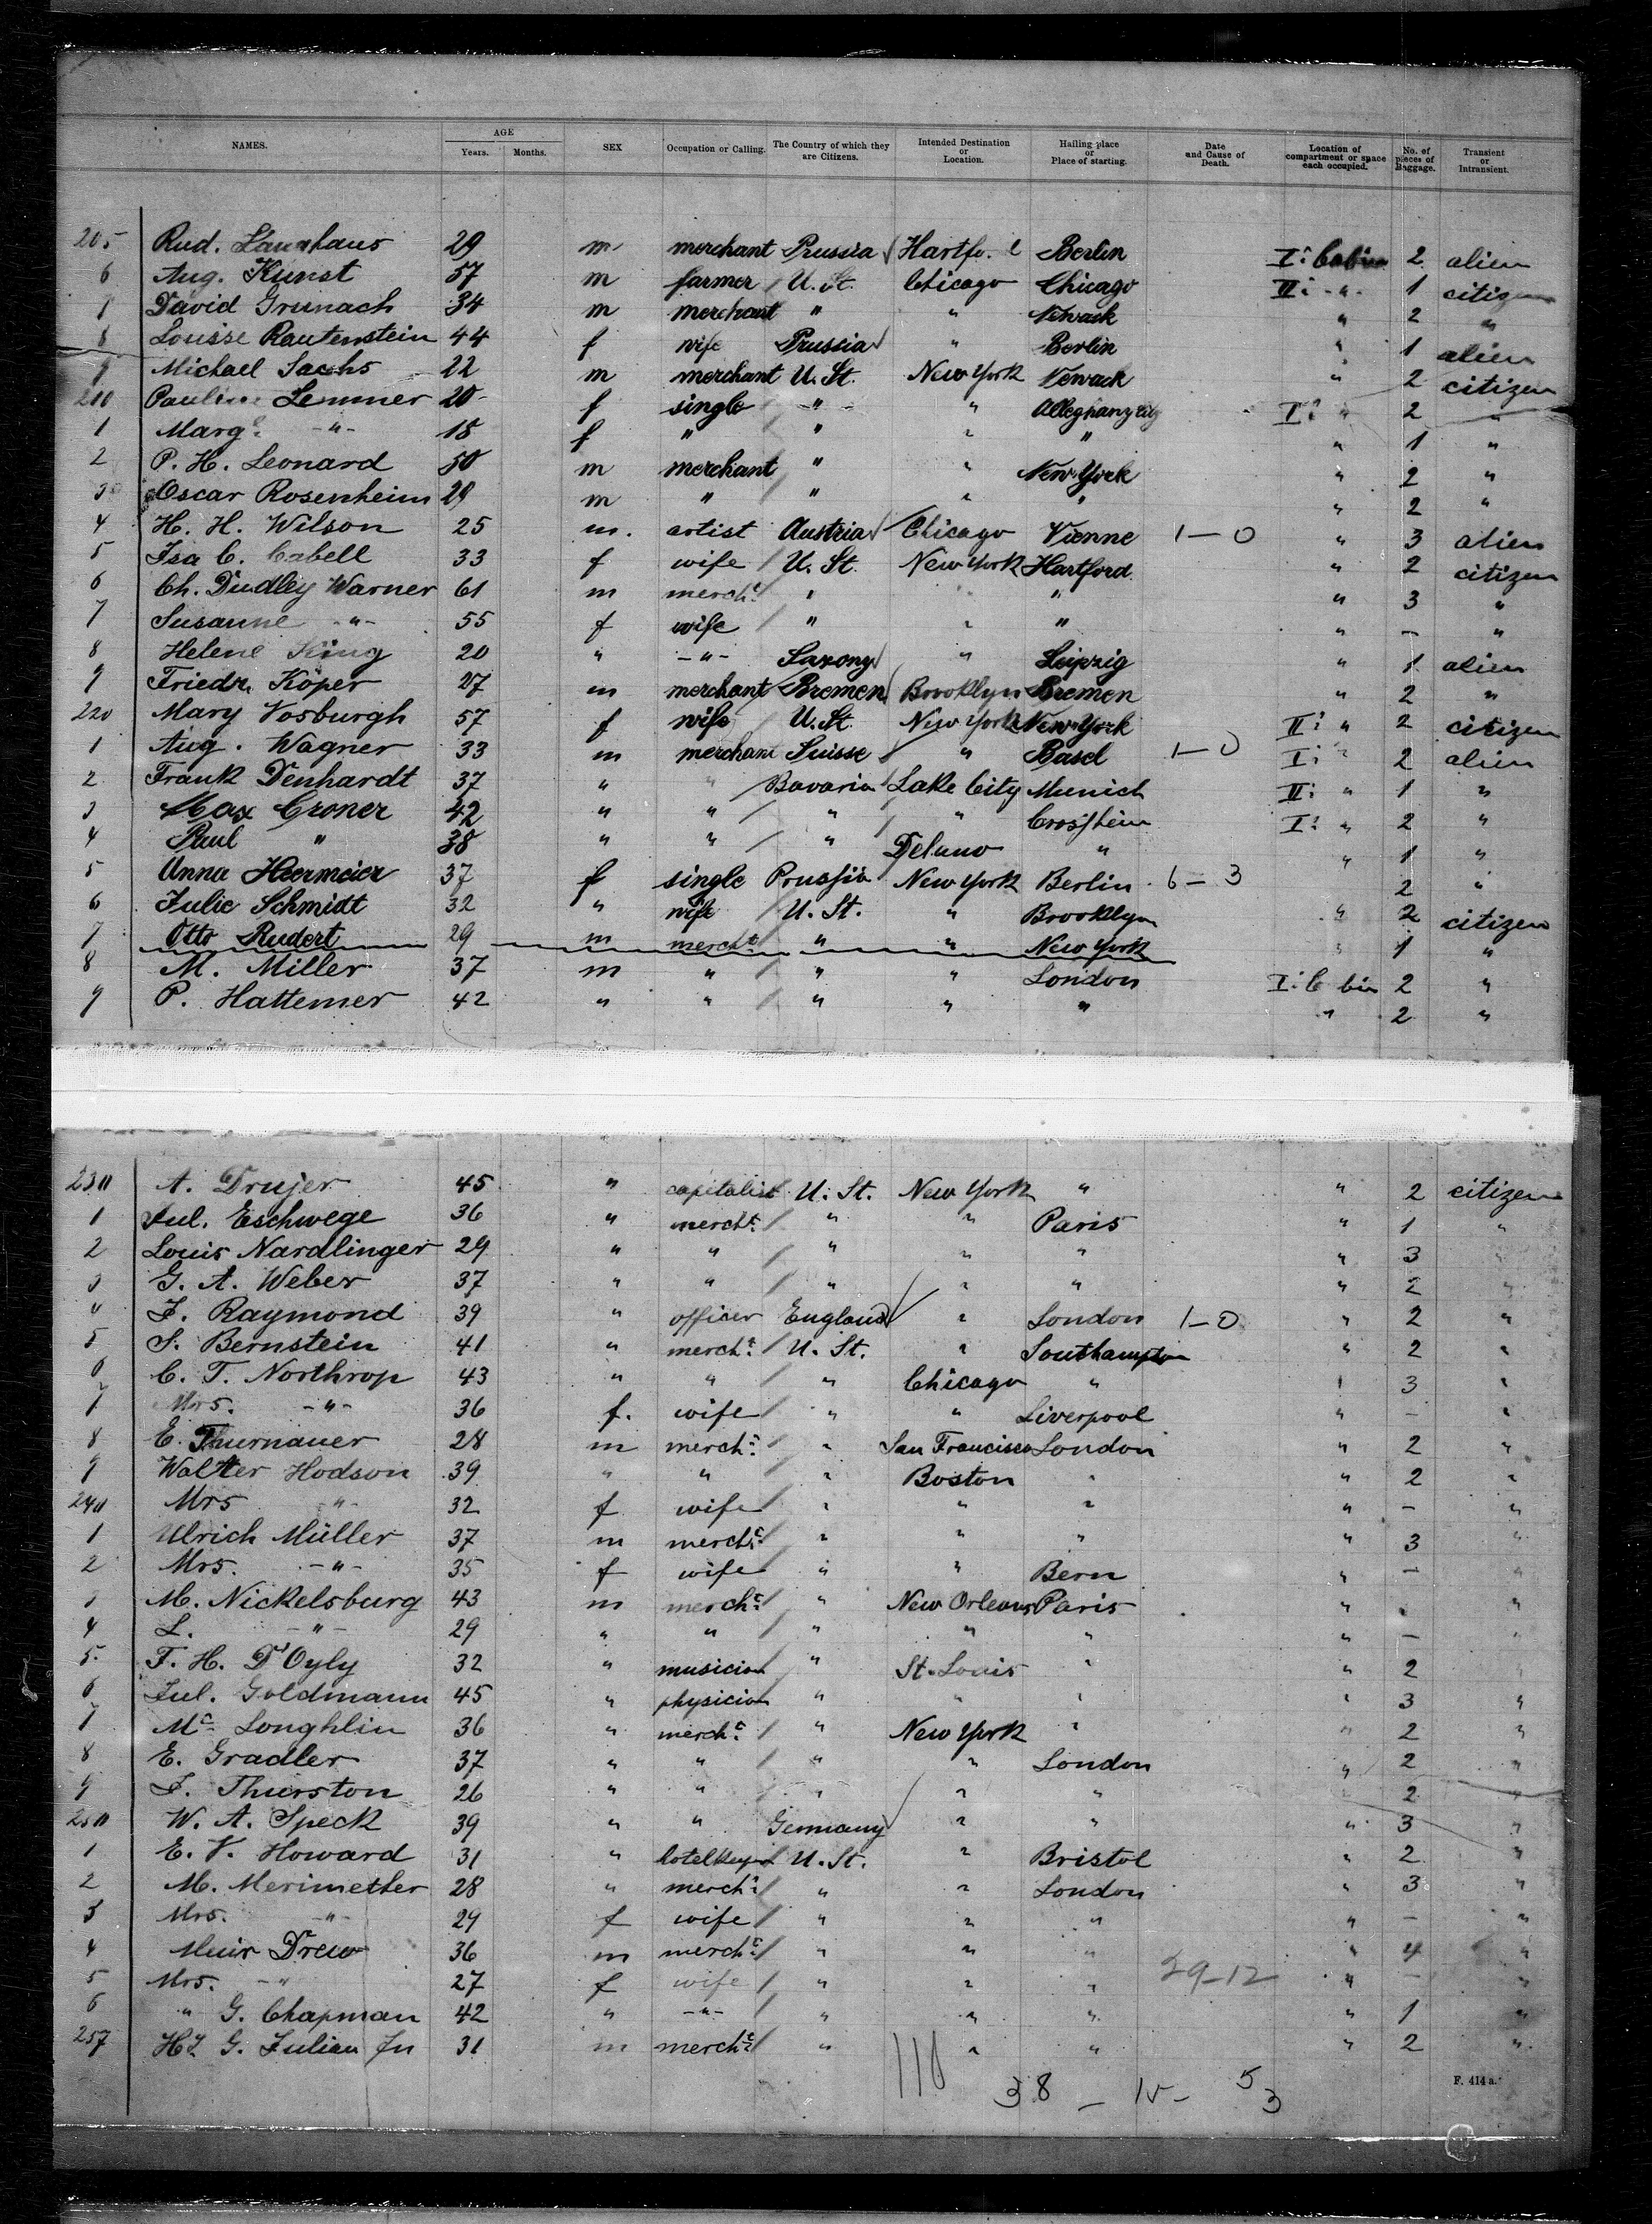 NAMES. AGE Years. Months. SEX Occupation or Calling. The Country of which they are Citizens. Intended Destination or Location. Hailing place or Place of starting. Date and Cause of Death. Location of compartment or space each occupied. No. of pieces of Baggage. Transient or Intransient.
205 Rud. 29 m merchant Prussia Berlin I: Cabin 2 alien
6 Aug. Kunst 57 m farmer U. St. Chicago Chicago II: -"- 1 citizen
David Grunach 34 m merchant " " Newark " 2 "
8 Louise Rautenstein 44 f wife Prussia " Berlin " 1 alien
9 Michael Sachs 22 m merchant U. St. New York Newark " 2 citizen
210 Pauline Lemmer 20 f single -"- " Alleghany City I: " 2 "
1 Marg. -"- 18 f " " " " " 1 "
2 P. H. Leonard 50 m merchant " " New York " 2 "
3 Oscar Rosenheim 29 m " " " " " 2 "
4 H. H. Wilson 25 m. artist Austria Chicago Vienne 1-0 " 3 alien
5 Isa C. Cabell 33 f wife U. St. New York Hartford " 2 citizen
6 Ch. Dudley Warner 61 m mercht " " " 3 "
7 Susanne -"- 55 f wife " " " " - "
8 Helene 20 " -"- Saxony " Leipzig " 1 alien
9 Friedr. Köper 27 m merchant Bremen Brooklyn Bremen " 2 "
220 Mary Vosburgh 57 f wife U. St. New York New York II: " 2 citizen
1 Aug. Wagner 33 m merchant Suisse " Basel 1-0 I: " 2 alien
2 Frank Denhardt 37 " " Bavaria Lake City Munich II: " 1 "
3 Max Croner 42 " " " " I: " 2 "
4 Paul " 38 " " " " " 1 "
5 Anna Heermeier 37 f single Prussia New York Berlin 6-3 2 "
6 Julie Schmidt 32 " wife U. St. " Brooklyn " 2 citizen
7 Otto Rudert 29 m mercht " " New York " 1 "
8 M. Miller 37 m " " " London I: C bin 2 "
9 P. Hattemer 42 " " " " " " 2 "
230 A. Drujer 45 " capitalist U. St. New York " " 2 citizen
1 Jul. Eschwege 36 " mercht. " " Paris " 1 "
2 Louis Nardlinger 29 " " " " " " 3 "
3 G. A. Weber 37 " " " " " " 2 "
4 F. Raymond 39 " officer England " London 1-0 " 2 "
5 S. Bernstein 41 " mercht. U. St. " Southampton " 2 "
6 C. T. Northrop 43 " " " Chicago " 3 "
7 Mrs. -"- 36 f. wife " " Liverpool " - "
8 E. Thurnauer 28 m mercht. " San Francisco London " 2 "
9 Walter Hodson 39 " " " Boston " " 2 "
240 Mrs -"- 32 f wife " " " " - "
1 Ulrich Müller 37 m mercht. " " " " 3 "
2 Mrs. -"- 35 f wife " " Bern " - "
3 M. Nickelsburg 43 m mercht. " New Orleans Paris " "
4 L. -"- 29 " " " " " " - "
5 F. H. D'Oyly 32 " musician " St. Louis " " 2
6 Jul. Goldmann 45 " physician " " " " 3 "
7 Mc Loughlin 36 " mercht. " New York " " 2 "
8 E. Gradler 37 " " " " London " 2 "
9 F. Thurston 26 " " " " " " 2 "
250 W. A. Speck 39 " " Germany " " " 3 "
1 E. V. Howard 31 " hotelkeeper U. St. " Bristol " 2 "
2 M. Merimether 28 " mercht. " " London " 3 "
3 Mrs. -"- 29 f wife " " " " - "
4 Muir Drew 36 m mercht. " " " " 4 "
5 Mrs. -"- 27 f wife " " " 29-12 " - "
6 " G. Chapman 42 " -"- " " " " 1 "
257 Hy. G. Julian Jn 31 m mercht. " " " " 2 "
38 - 15 - 53
F. 414 a.